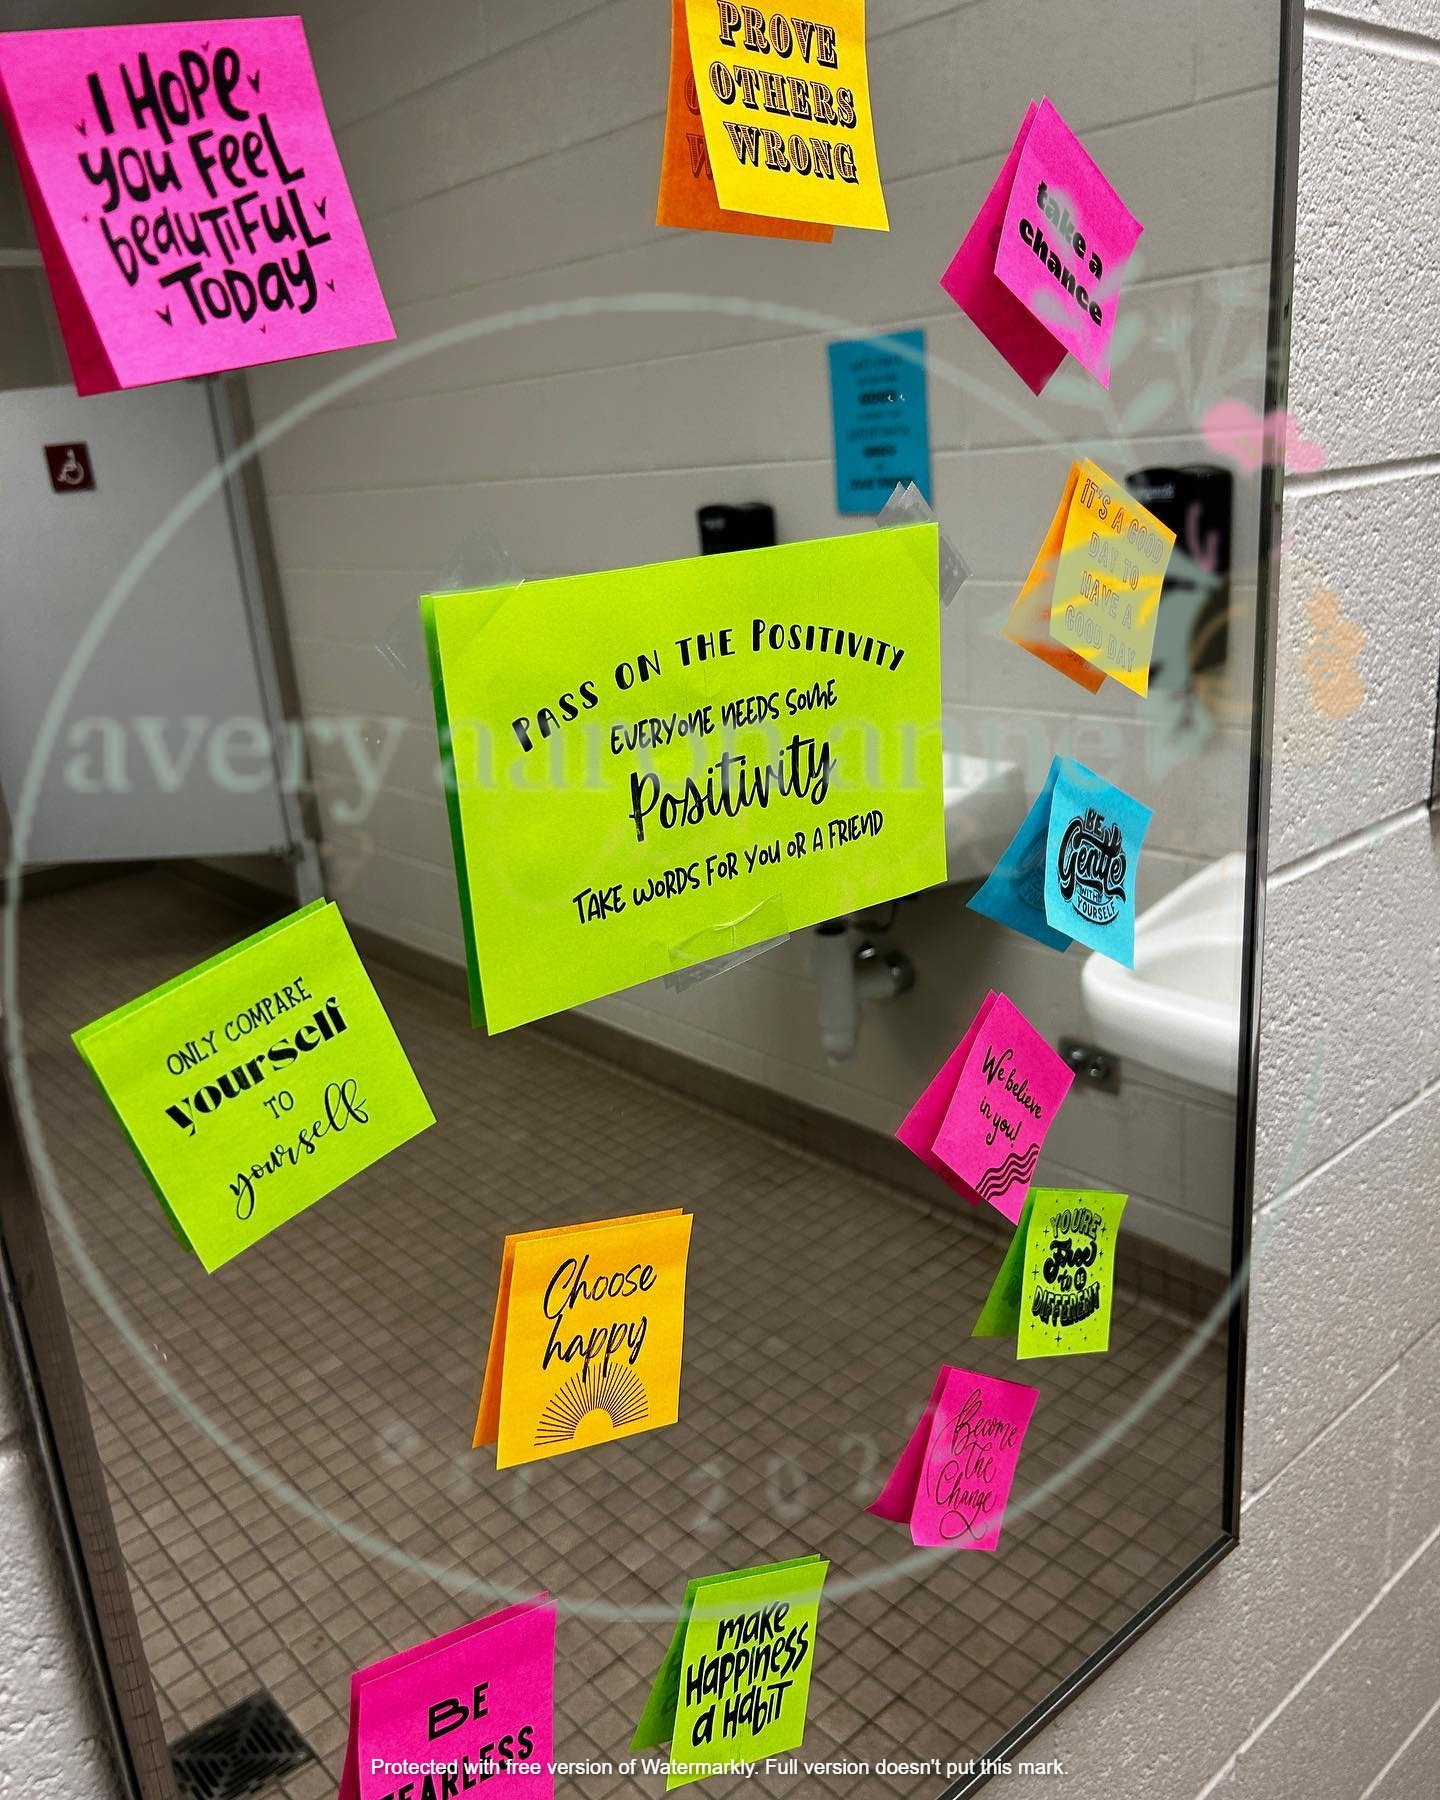 I HOPE
you FEEL
beauTiFUL
TODAY
PROVE
OTHERS
WRONG
take a
chance
IT'S A GOOD
DAY TO
HAVE A
GOOD DAY
PASS ON THE POSITIVITY
EVERYONE NEEDS SOME
Positivity
TAKE WORDS FOR YOU OR A FRIEND
BE
Gentle
WITH
YOURSELF
ONLY COMPARE
yourself
TO
yourself
We believe
in you!
YOU'RE
Free
to BE
DIFFERENT
Choose
happy
Become
The
Change
make
HAPPINESS
a HabiT
BE
FEARLESS
avery aaron anne
Protected with free version of Watermarkly. Full version doesn't put this mark.